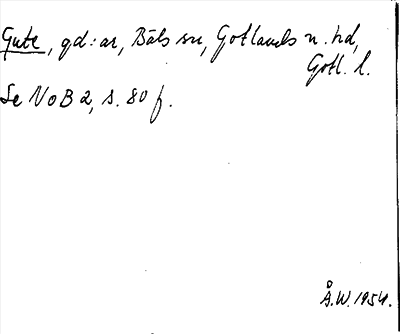 Gute, gd:ar, Bäls sn, Gotlands n. hd,
Gotl. l.
Se NoB 2, s. 80 f.
Å.W. 1954.